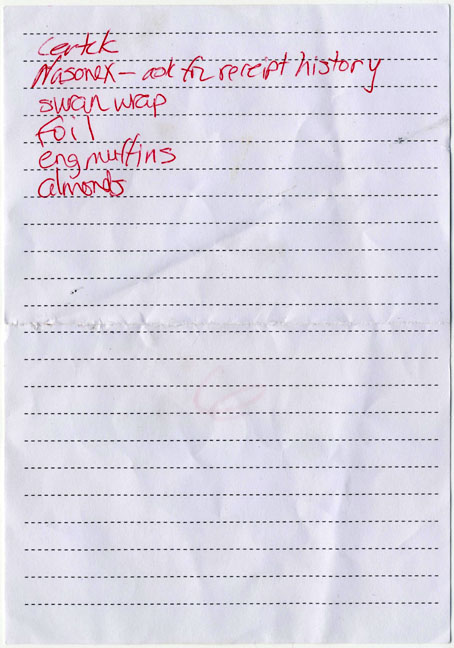 Nasonex - ask for receipt history
swan wrap
Foil
eng muffins
almonds